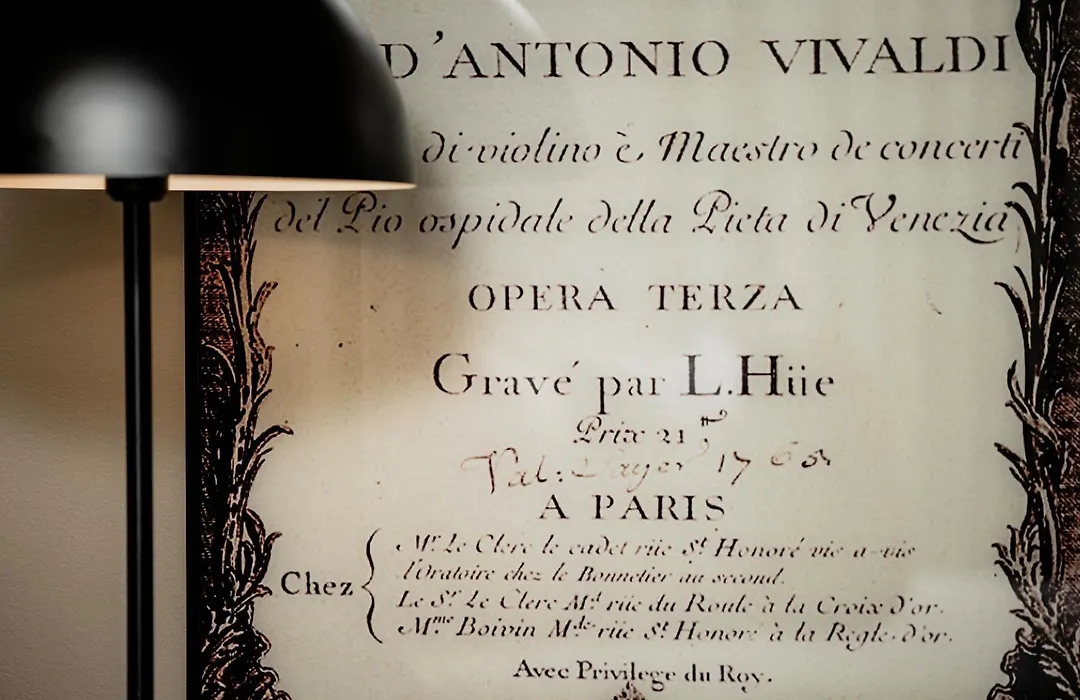 D'ANTONIO VIVALDI
di violino è Maestro de concerti
del Pio ospidale della Pieta di Venezia
OPERA TERZA
Gravé par L.Hüe
Prix 21 ₶
1765
A PARIS
Chez
Mr. Le Clerc le cadet rüe St Honoré vis a-vis
l'Oratoire chez le Bonnetier au second.
Le Sr. Le Clerc Md rüe du Roule à la Croix d'or.
Mme Boivin Mde rüe St Honoré à la Regle d'or.
Avec Privilege du Roy.